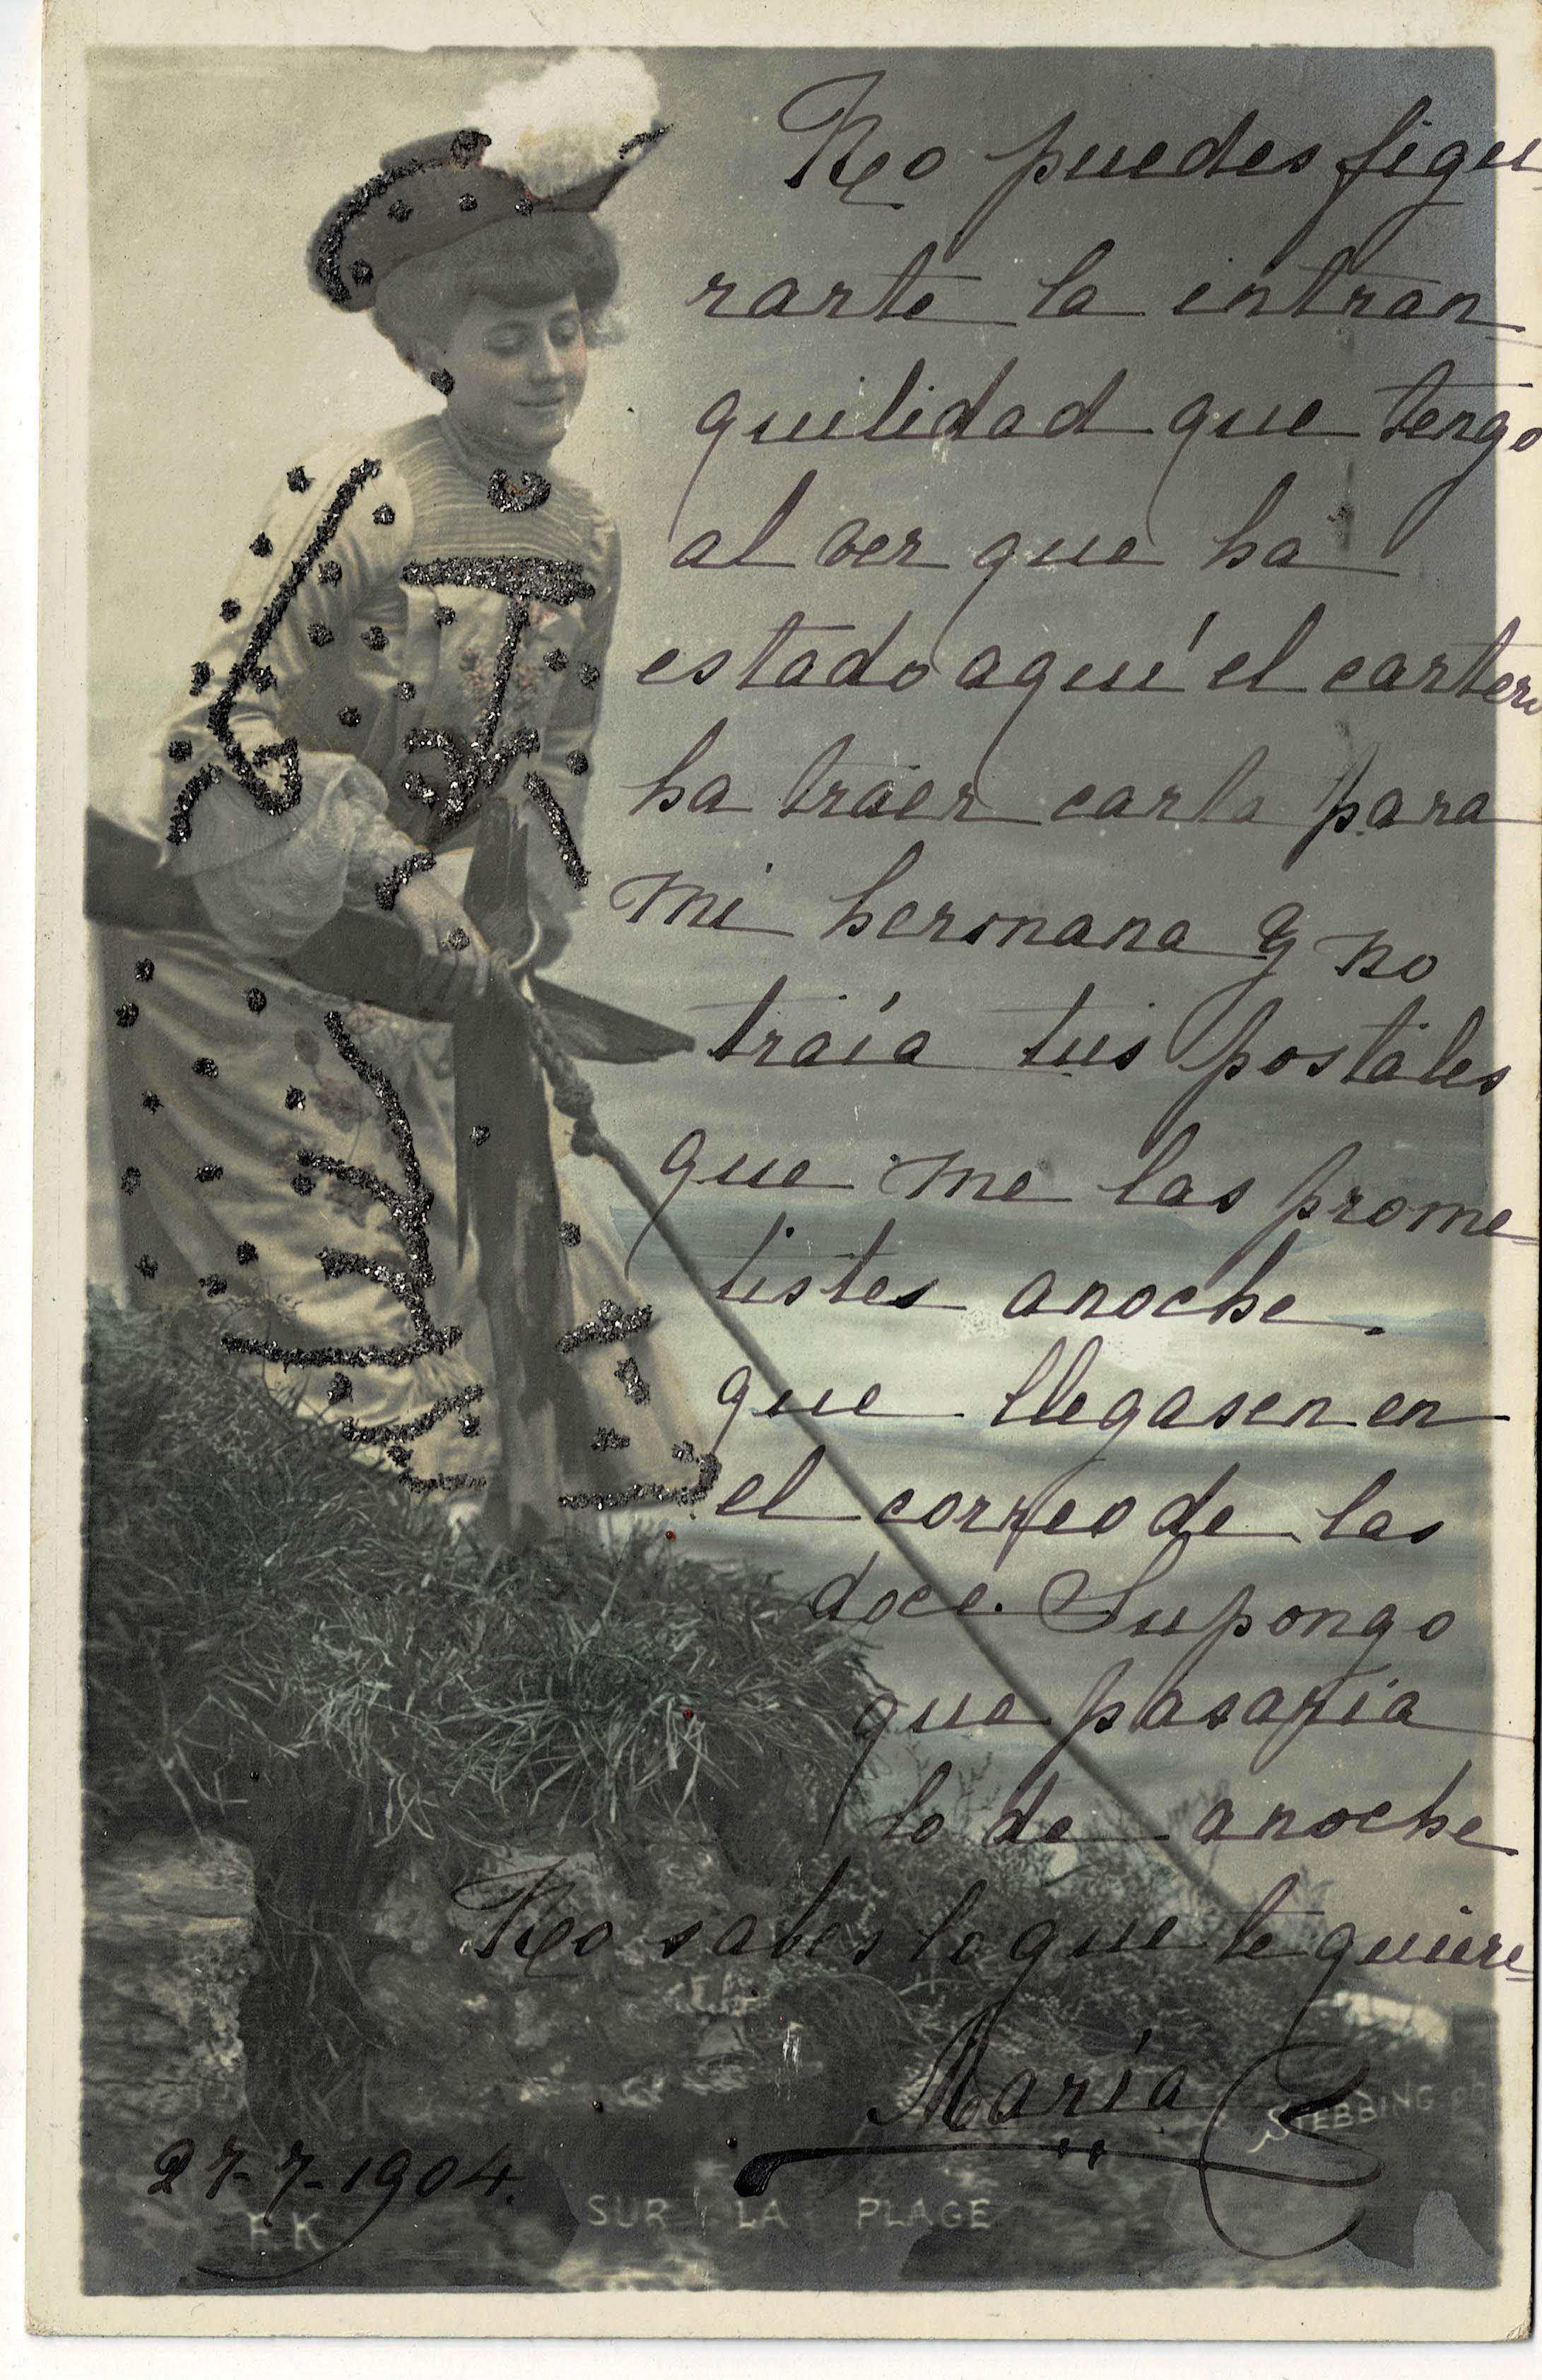 No puedes figu
rarte la intran
quilidad que tengo
al ver que ha
estado aquí el cartero
ha tráer carta para
mi hermana y no
traía tus postáles
que me las prome-
tistes anoche.
que llegasen en
el correo de las
doce. Supongo
que pasaría
lo de anoche
No sabes lo que te quiere
María
STEBBING
27-7-1904.
SUR LA PLAGE
K